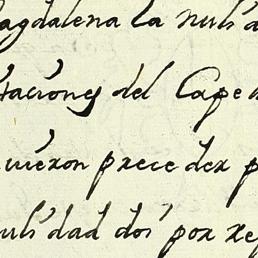 agdalena la nuli d
taciones del Cape
uieron prece der p
uli dad dos por re